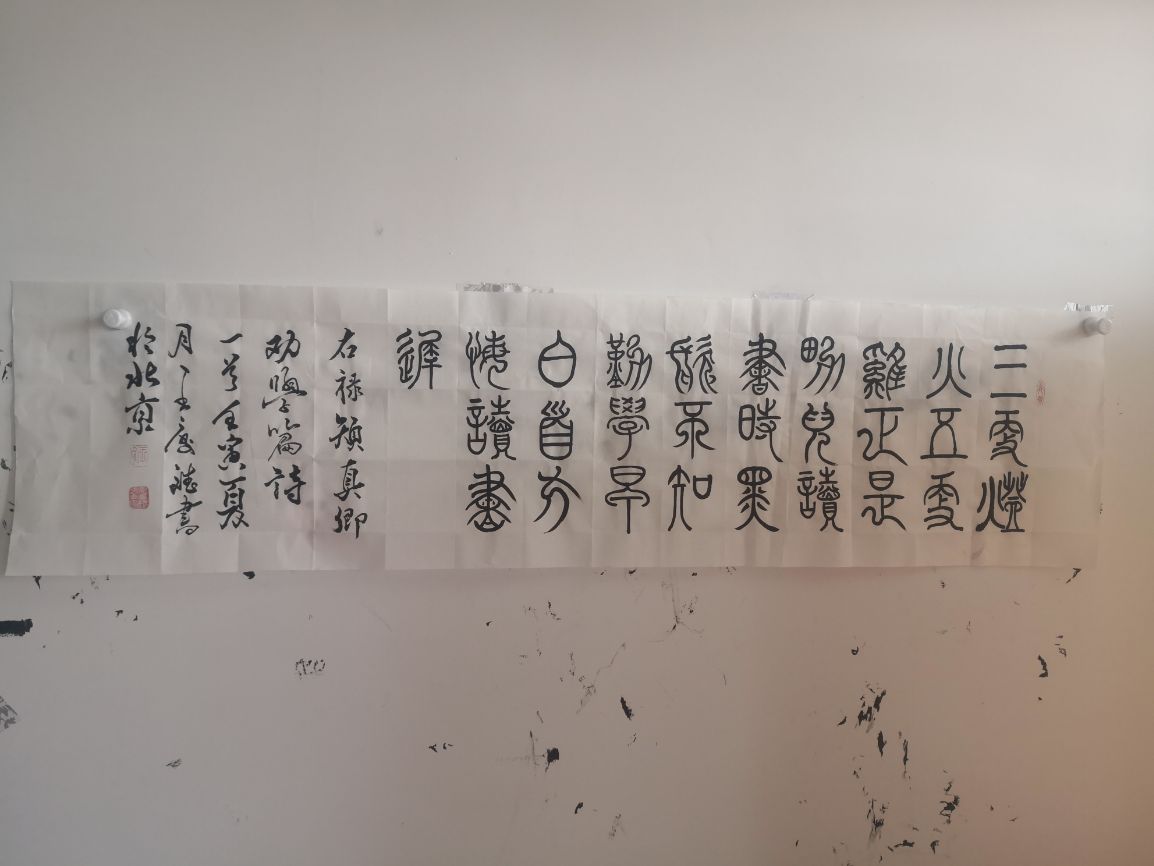 三更燈
火五更
雞正是
男兒讀
書時黑
髮不知
勤學早
白首方
悔讀書
遲
右禄顏真卿
劝學篇詩
一首壬寅夏
月王慶書
於北京